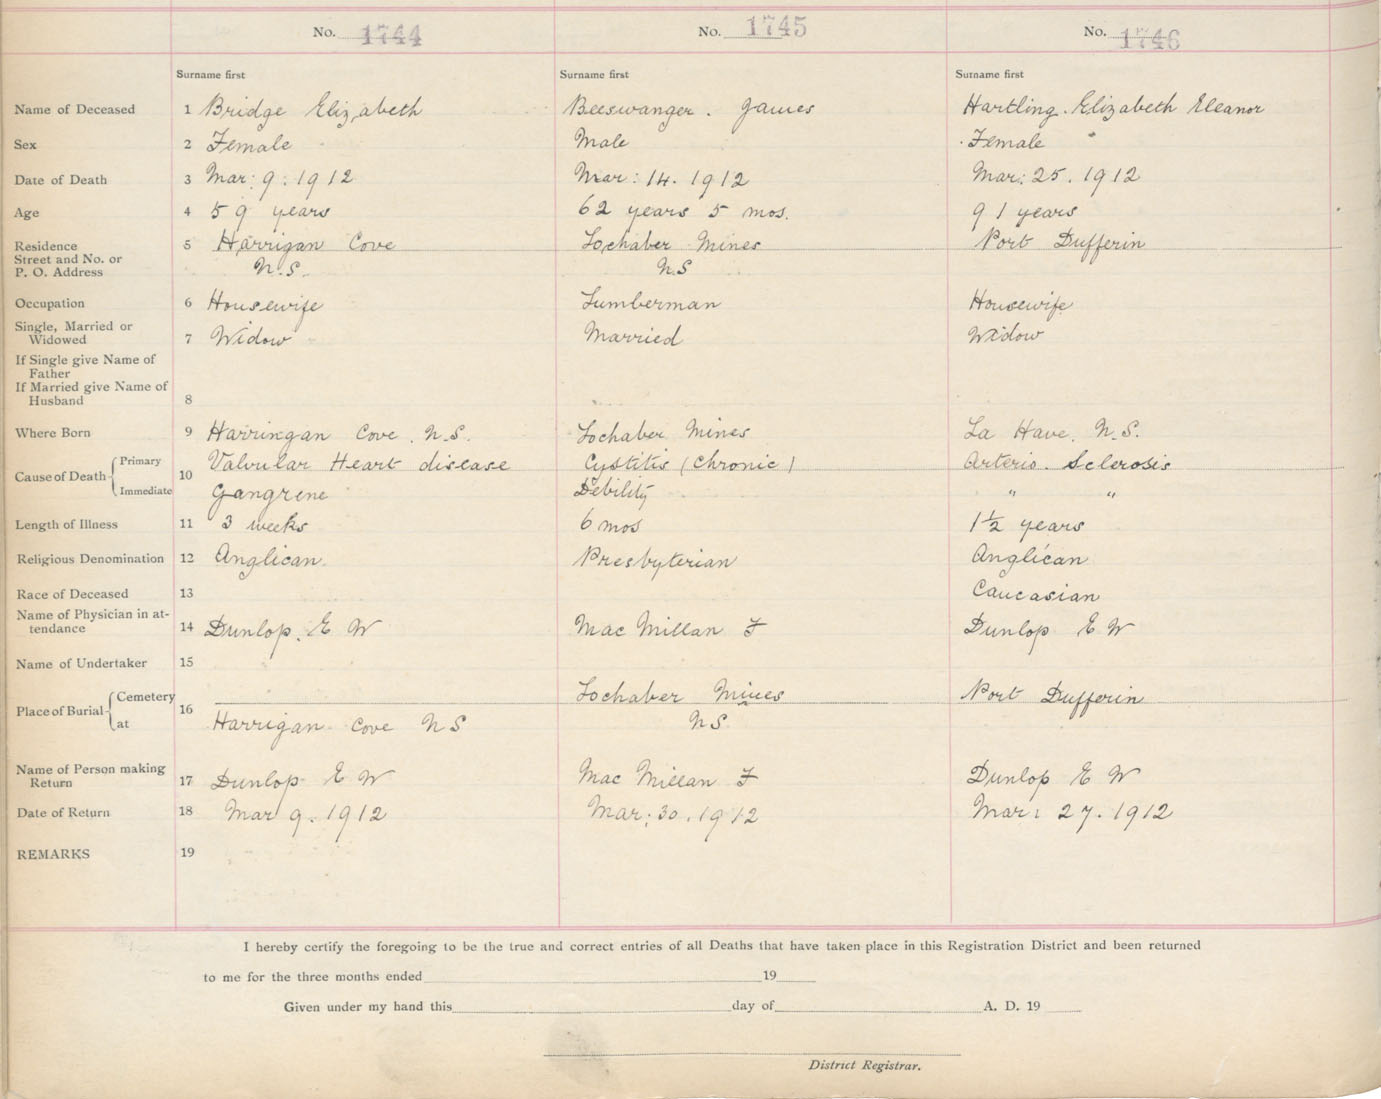 No. 1744 No. 1745 No. 1746
Surname first Surname first Surname first
Name of Deceased 1 Bridge Elizabeth Beeswanger. James Hartling. Elizabeth Eleanor
Sex 2 Female Male Female
Date of Death 3 Mar: 9: 1912 Mar: 14. 1912 Mar: 25. 1912
Age 4 59 years 62 years 5 mos. 91 years
Residence 5 Harrigan Cove Lochaber Mines Port Dufferin
Street and No. or
P. O. Address N.S. N.S
Occupation 6 Housewife Lumberman Housewife
Single, Married or
Widowed 7 Widow Married Widow
If Single give Name of
Father
If Married give Name of
Husband 8
Where Born 9 Harringan Cove. N.S. Lochaber Mines La Have. N.S.
Cause of Death Primary 10 Valvular Heart disease Cystitis (Chronic) Arterio. Sclerosis
Immediate Gangrene Debility " "
Length of Illness 11 3 weeks 6 mos 1½ years
Religious Denomination 12 Anglican. Presbyterian Anglican
Race of Deceased 13 Caucasian
Name of Physician in at-
tendance 14 Dunlop. E W Mac Millan F Dunlop E W
Name of Undertaker 15
Place of Burial Cemetery 16 Lochaber Mines Port Dufferin
at Harrigan Cove N S N S
Name of Person making
Return 17 Dunlop E W Mac Millan F Dunlop E W
Date of Return 18 Mar 9. 1912 Mar: 30. 1912 Mar: 27. 1912
REMARKS 19
I hereby certify the foregoing to be the true and correct entries of all Deaths that have taken place in this Registration District and been returned
to me for the three months ended 19
Given under my hand this day of A. D. 19
District Registrar.